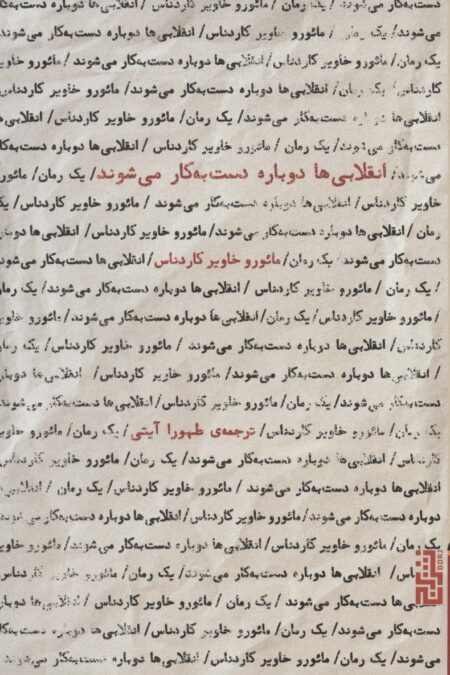 دست‌به‌کار می‌شوند / یک رمان / مائورو خاویر کاردناس/ انقلابی‌ها دوباره دست‌به‌کار
می‌شوند/ یک رمان / مائورو خاویر کاردناس /انقلابی‌ها دوباره دست‌به‌کار می‌شوند/
یک رمان/ مائورو خاویر کاردناس /انقلابی‌ها دوباره دست‌به‌کار می‌شوند / یک رمان/
کاردناس/ یک رمان/ انقلابی‌ها دوباره دست‌به‌کار می‌شوند/ مائورو خاویر
انقلابی‌ها دوباره دست‌به‌کار می‌شوند/ یک رمان/ مائورو خاویر کاردناس/ انقلابی‌ها
می‌شوند/ یک رمان/ مائورو خاویر کاردناس / انقلابی‌ها دوباره دست‌به‌کار
می‌شوند/ انقلابی‌ها دوباره دست‌به‌کار می‌شوند/ یک رمان/ مائورو
خاویر کاردناس/ انقلابی‌ها دوباره دست‌به‌کار می‌شوند / مائورو خاویر کاردناس/
رمان / انقلابی‌ها دوباره دست‌به‌کار می‌شوند/ مائورو خاویر کاردناس/ انقلابی‌ها
دست‌به‌کار می‌شوند/ یک رمان/ مائورو خاویر کاردناس/ انقلابی‌ها دوباره دست‌به‌کار
/ یک رمان / مائورو خاویر کاردناس / انقلابی‌ها دوباره دست‌به‌کار می‌شوند/ یک رمان
/ مائورو خاویر کاردناس/ یک رمان/ انقلابی‌ها دوباره دست‌به‌کار می‌شوند/ مائورو خاویر
کاردناس/ یک رمان/ انقلابی‌ها دوباره دست‌به‌کار می‌شوند / مائورو خاویر کاردناس/ یک رمان
/ انقلابی‌ها دوباره دست‌به‌کار می‌شوند/ مائورو خاویر کاردناس/ انقلابی‌ها دوباره
دست‌به‌کار می‌شوند/ یک رمان/ مائورو خاویر کاردناس/انقلابی‌ها دوباره دست‌به‌کار می‌شوند
یک رمان/ مائورو خاویر کاردناس/ ترجمه‌ی طهورا آیتی/ یک رمان/ مائورو خاویر
کاردناس/ انقلابی‌ها دوباره دست‌به‌کار می‌شوند/ یک رمان/ مائورو خاویر کاردناس/
انقلابی‌ها دوباره دست‌به‌کار می‌شوند / مائورو خاویر کاردناس/ یک رمان / انقلابی‌ها
دوباره دست‌به‌کار می‌شوند/ مائورو خاویر کاردناس/ انقلابی‌ها دوباره دست‌به‌کار می‌شوند
یک رمان/ مائورو خاویر کاردناس/ انقلابی‌ها دوباره دست‌به‌کار می‌شوند/ مائورو خاویر
انقلابی‌ها دوباره دست‌به‌کار می‌شوند/ یک رمان/ مائورو خاویر کاردناس
دست‌به‌کار می‌شوند / یک رمان / مائورو خاویر کاردناس/ انقلابی‌ها دوباره
دست‌به‌کار می‌شوند/ یک رمان/ مائورو خاویر کاردناس/ انقلابی‌ها دوباره دست‌به‌کار
می‌شوند/ یک رمان/ مائورو خاویر کاردناس/ انقلابی‌ها دوباره دست‌به‌کار می‌شوند
BORJ